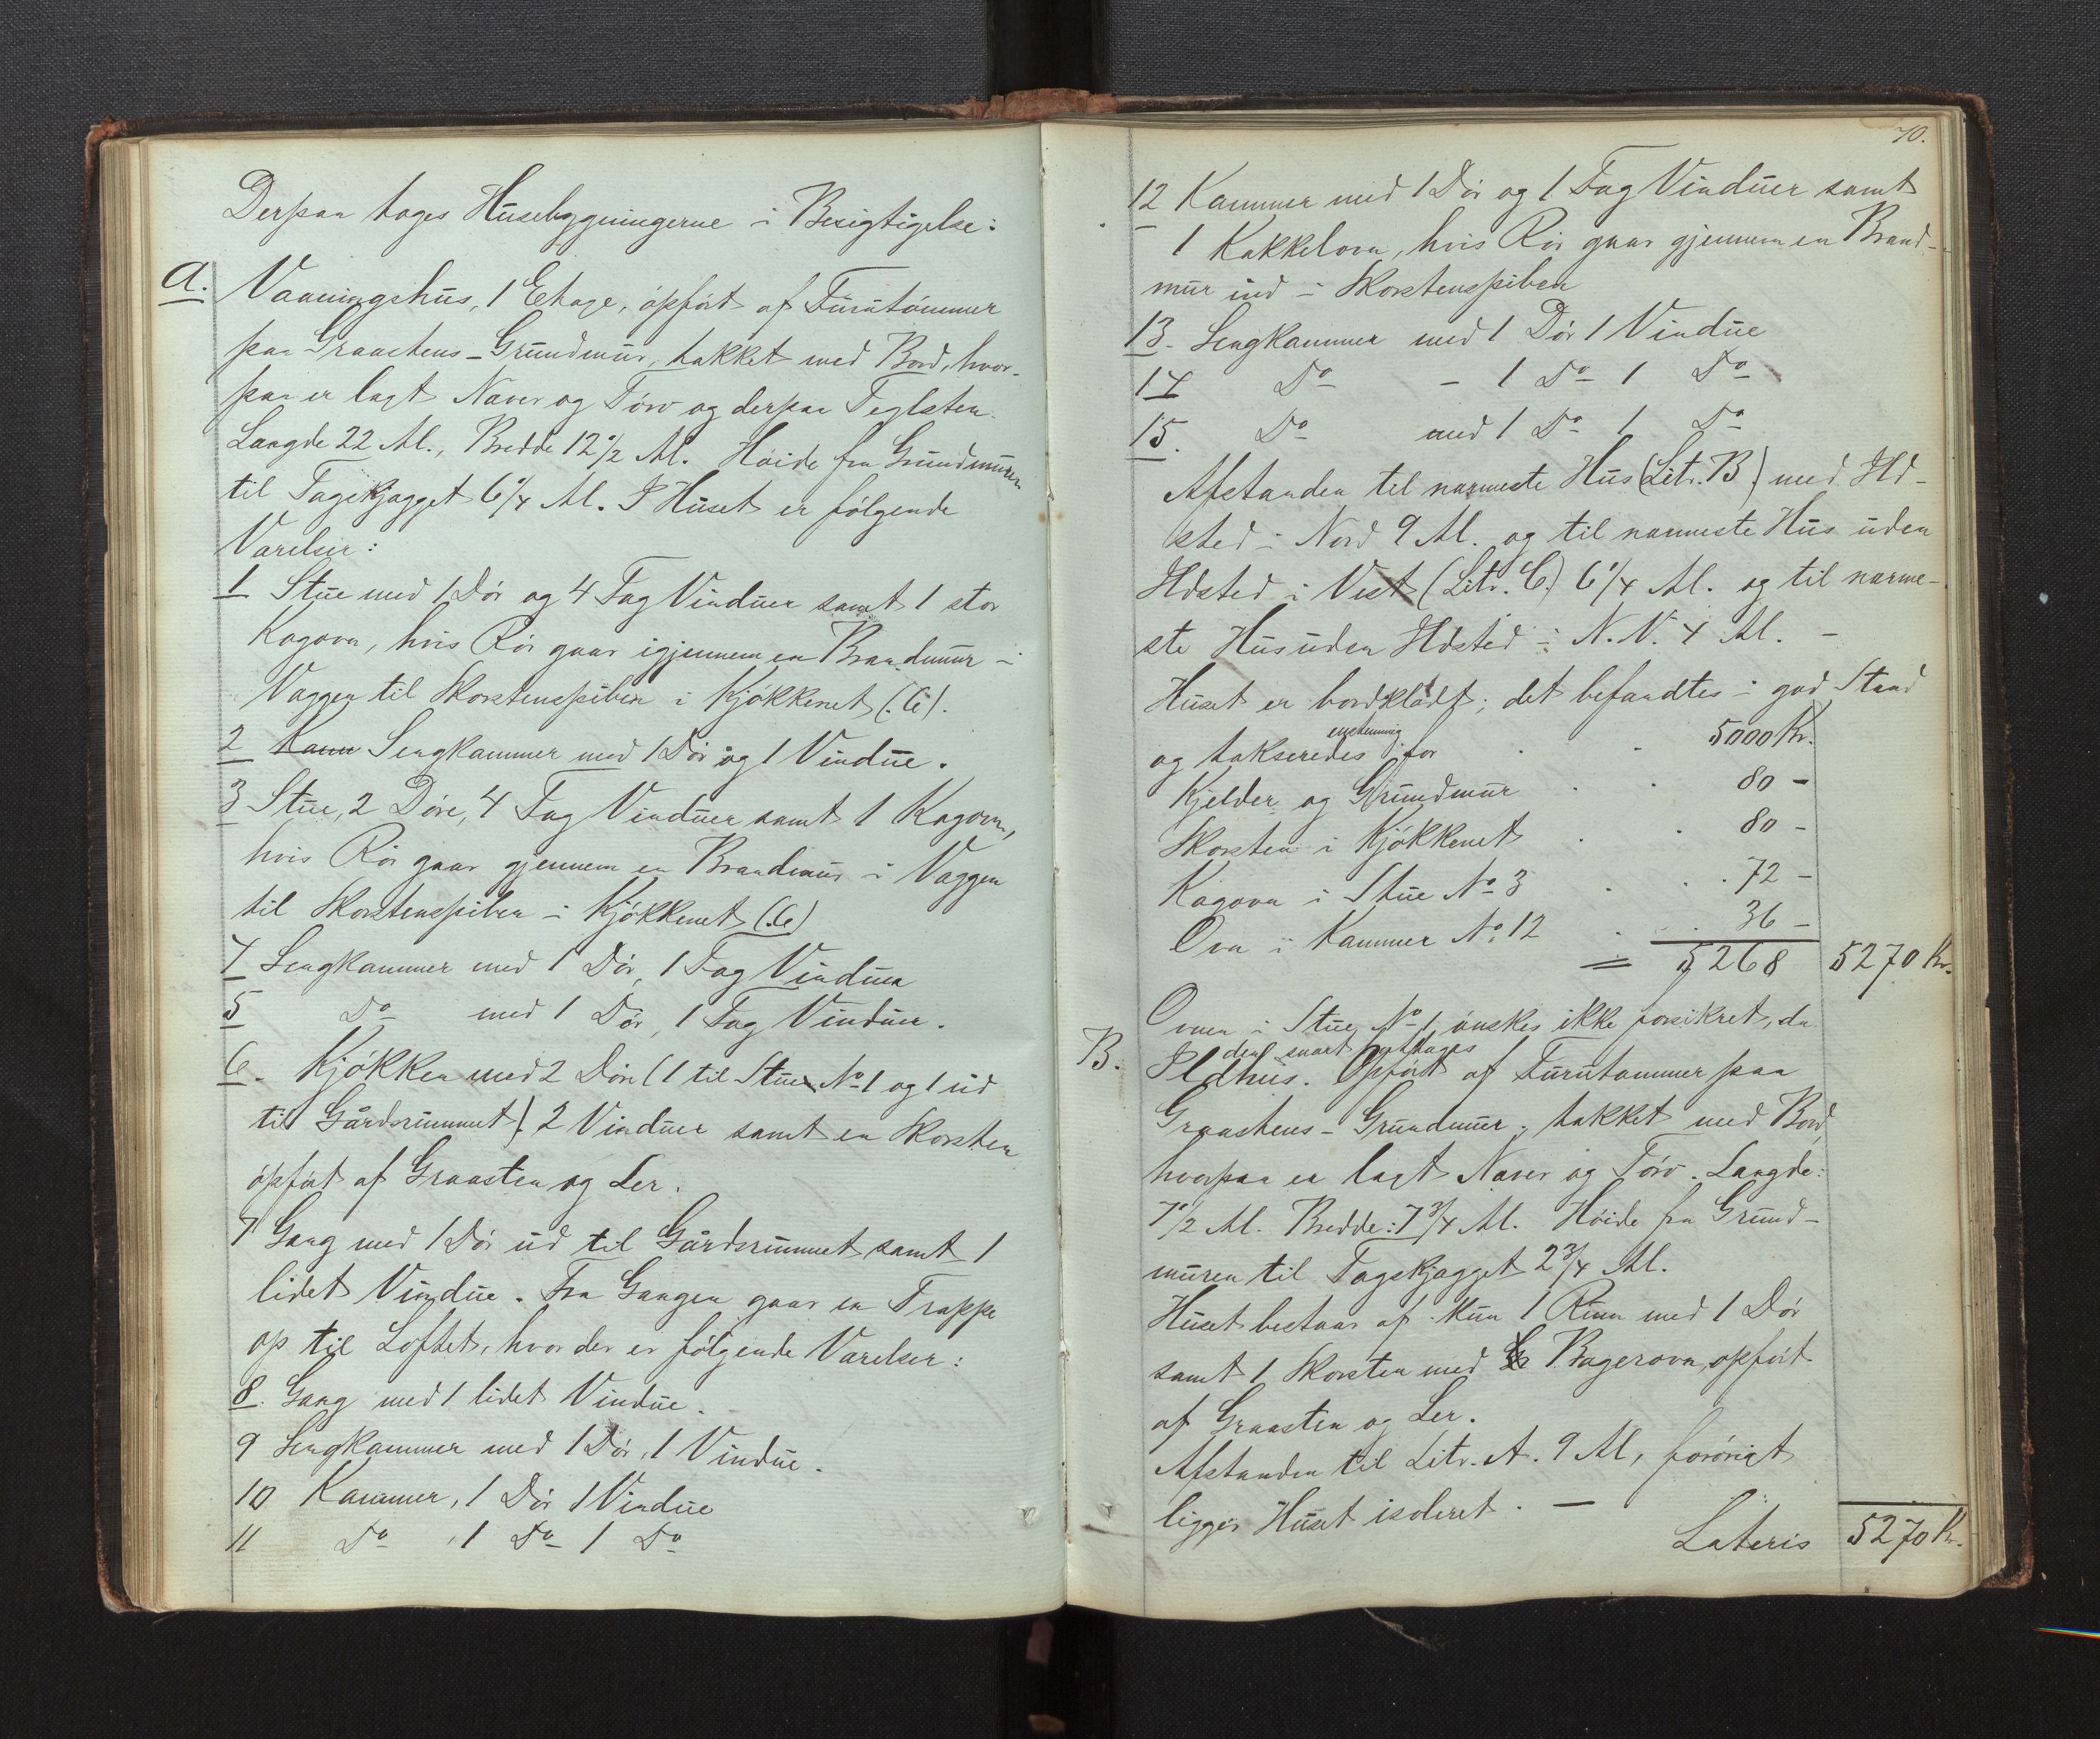 Derpaa toges Husebygningerne i Besigtigelse:
A. Vaaningshus, 1 Etage, opført af Furutømmer
paa Graastens-Grundmur, takket med Bord, hvor-
paa er lagt Næver og Tørv og derpaa Teglsten.
Længde 22 Al., Bredde 12 1/2 Al. Høide fra Grundmuren
til Tagskjægget 6 1/4 Al. I Huset er følgende
Værelser:
1 Stue med 1 Dør og 4 Fag Vinduer samt 1 stor
Kogovn, hvis Rør gaar igjennem en Brandmur i
Væggen til Skorstenspiben i Kjøkkenet (:6).
2 Kam Sengkammer med 1 Dør og 1 Vindue.
3 Stue, 2 Døre, 4 Fag Vinduer samt 1 Kogovn,
hvis Rør gaar gjennem en Brandmur i Væggen
til Skorstenspiben i Kjøkkenet (:6)
4 Sengkammer med 1 Dør, 1 Fag Vinduer
5 Do med 1 Dør, 1 Fag Vinduer.
6. Kjøkken med 2 Døre (1 til Stue No 1 og 1 ud
til Gårdsrummet) 2 Vinduer samt en Skorsten
opført af Graasten og Ler.
7 Gang med 1 Dør ud til Gårdsrummet samt 1
lidet Vindue. Fra Gangen gaar en Trappe
op til Loftet, hvor der er følgende Værelser:
8. Gang med 1 lidet Vindue.
9 Sengkammer med 1 Dør, 1 Vindue.
10 Kammer, 1 Dør 1 Vindue
11 Do , 1 Do 1 Do
70.
12 Kammer med 1 Dør og 1 Fag Vinduer samt
1 Kakkelovn, hvis Rør gaar gjennem en Brand-
mur ind i Skorstenspiben
13. Sengkammer med 1 Dør 1 Vindue
14 Do - 1 Do 1 Do
15. Do med 1 Do 1 Do
Afstanden til nærmeste Hus (Litr. B) med Ild-
sted i Nord 9 Al. og til nærmeste Hus uden
Ildsted i Vest (Litr. C.) 6 1/4 Al. og til nærme-
ste Hus uden Ildsted i N.V. 4 Al. -
Huset er bordklædt; det befandtes i god Stand
og takseredes enstemmig for 5000 Kr.
Kjelder og Grundmur 80 -
Skorsten i Kjøkkenet 80 -
Kogovn i Stue No 3 72 -
Ovn i Kammer No 12 36 -
= 5268 5270 Kr.
Ovnen i Stue No 1 ønskes ikke forsikret, da
den snart
B. Ildhus. Opført af Furutømmer paa
Graastens-Grundmur; takket med Bord,
hvorpaa er lagt Næver og Tørv. Længde:
7 1/2 Al. Bredde: 7 3/4 Al. Høide fra Grund-
muren til Tagskjægget 2 3/4 Al.
Huset bestaar af kun 1 Rum med 1 Dør
samt 1 Skorsten med Bagerovn, opført
af Graasten og Ler.
Afstanden til Litr. A. 9 Al, forøvrigt
ligger Huset isoleret. -
Lateris 5270 Kr.